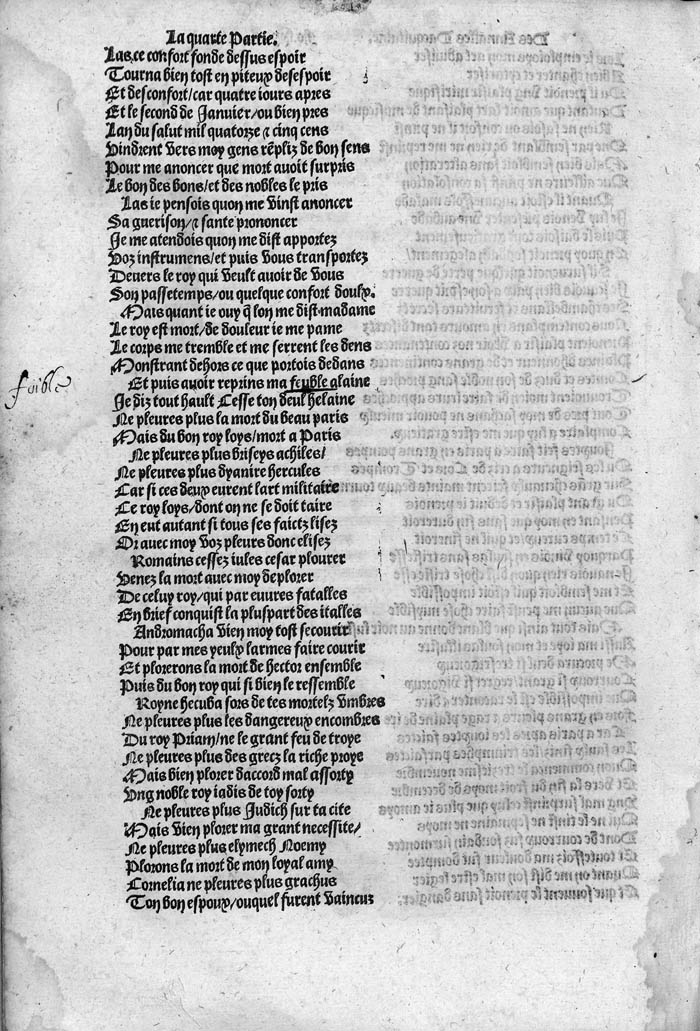 La quarte Partie.
Las, ce confort fonde dessus espoir
Tourna bien tost en piteux desespoir
Et desconfort/car quatre iours apres
Et le second de Januier/ou bien pres
Lan du salut mil quatorze ⁊ cinq cens
Vindrent vers moy gens rẽpliz de bon sens
Pour me anoncer que mort auoit surpris
Le bon des bons/et des nobles le pris
Las ie pensois quon me vinst anoncer
Sa guerison/⁊ sante prononcer
Je me atendois quon me dist apportez
Voz instrumens/et puis vous transportez
Deuers le roy qui veult auoir de vous
Son passetemps/ou quelque confort doulx.
Mais quant ie ouy q̃ lon me dist madame
Le roy est mort/de douleur ie me pame
Le corps me tremble et me serrent les dens
Monstrant dehors ce que portois dedans
Et puis auoir reprins ma feuble alaine
foible
Je diz tout hault Cesse ton deul helaine
Ne pleures plus la mort du beau paris
Mais du bon roy loys/mort a Paris
Ne pleures plus briseys achiles/
Ne pleures plus dyanire hercules
Car si ces deux eurent lart militaire
Ce roy loys/dont on ne se doit taire
En eut autant si tous ses faictz lisez
Or auec moy voz pleurs donc elisez
Romains cessez iules cesar plourer
Venez la mort auec moy deplorer
De celuy roy/qui par euures fatalles
En brief conquist la pluspart des italles
Andromacha vien moy tost secourir
Pour par mes yeulx larmes faire courir
Et plorerons la mort de hector ensemble
Puis du bon roy qui si bien le ressemble
Royne hecuba sors de tes mortelz vmbres
Ne pleures plus les dangereux encombres
Du roy Priam/ne le grant feu de troye
Ne pleures plus des grecz la riche proye
Mais bien plorer daccord mal assorty
Vng noble roy iadis de toy sorty
Ne pleures plus Judich sur ta cite
Mais vien plorer ma grant necessite/
Ne pleures plus elymech Noemy
Plorons la mort de mon loyal amy
Cornelia ne pleures plus grachus
Ton bon espoux/ouquel furent vaincuz